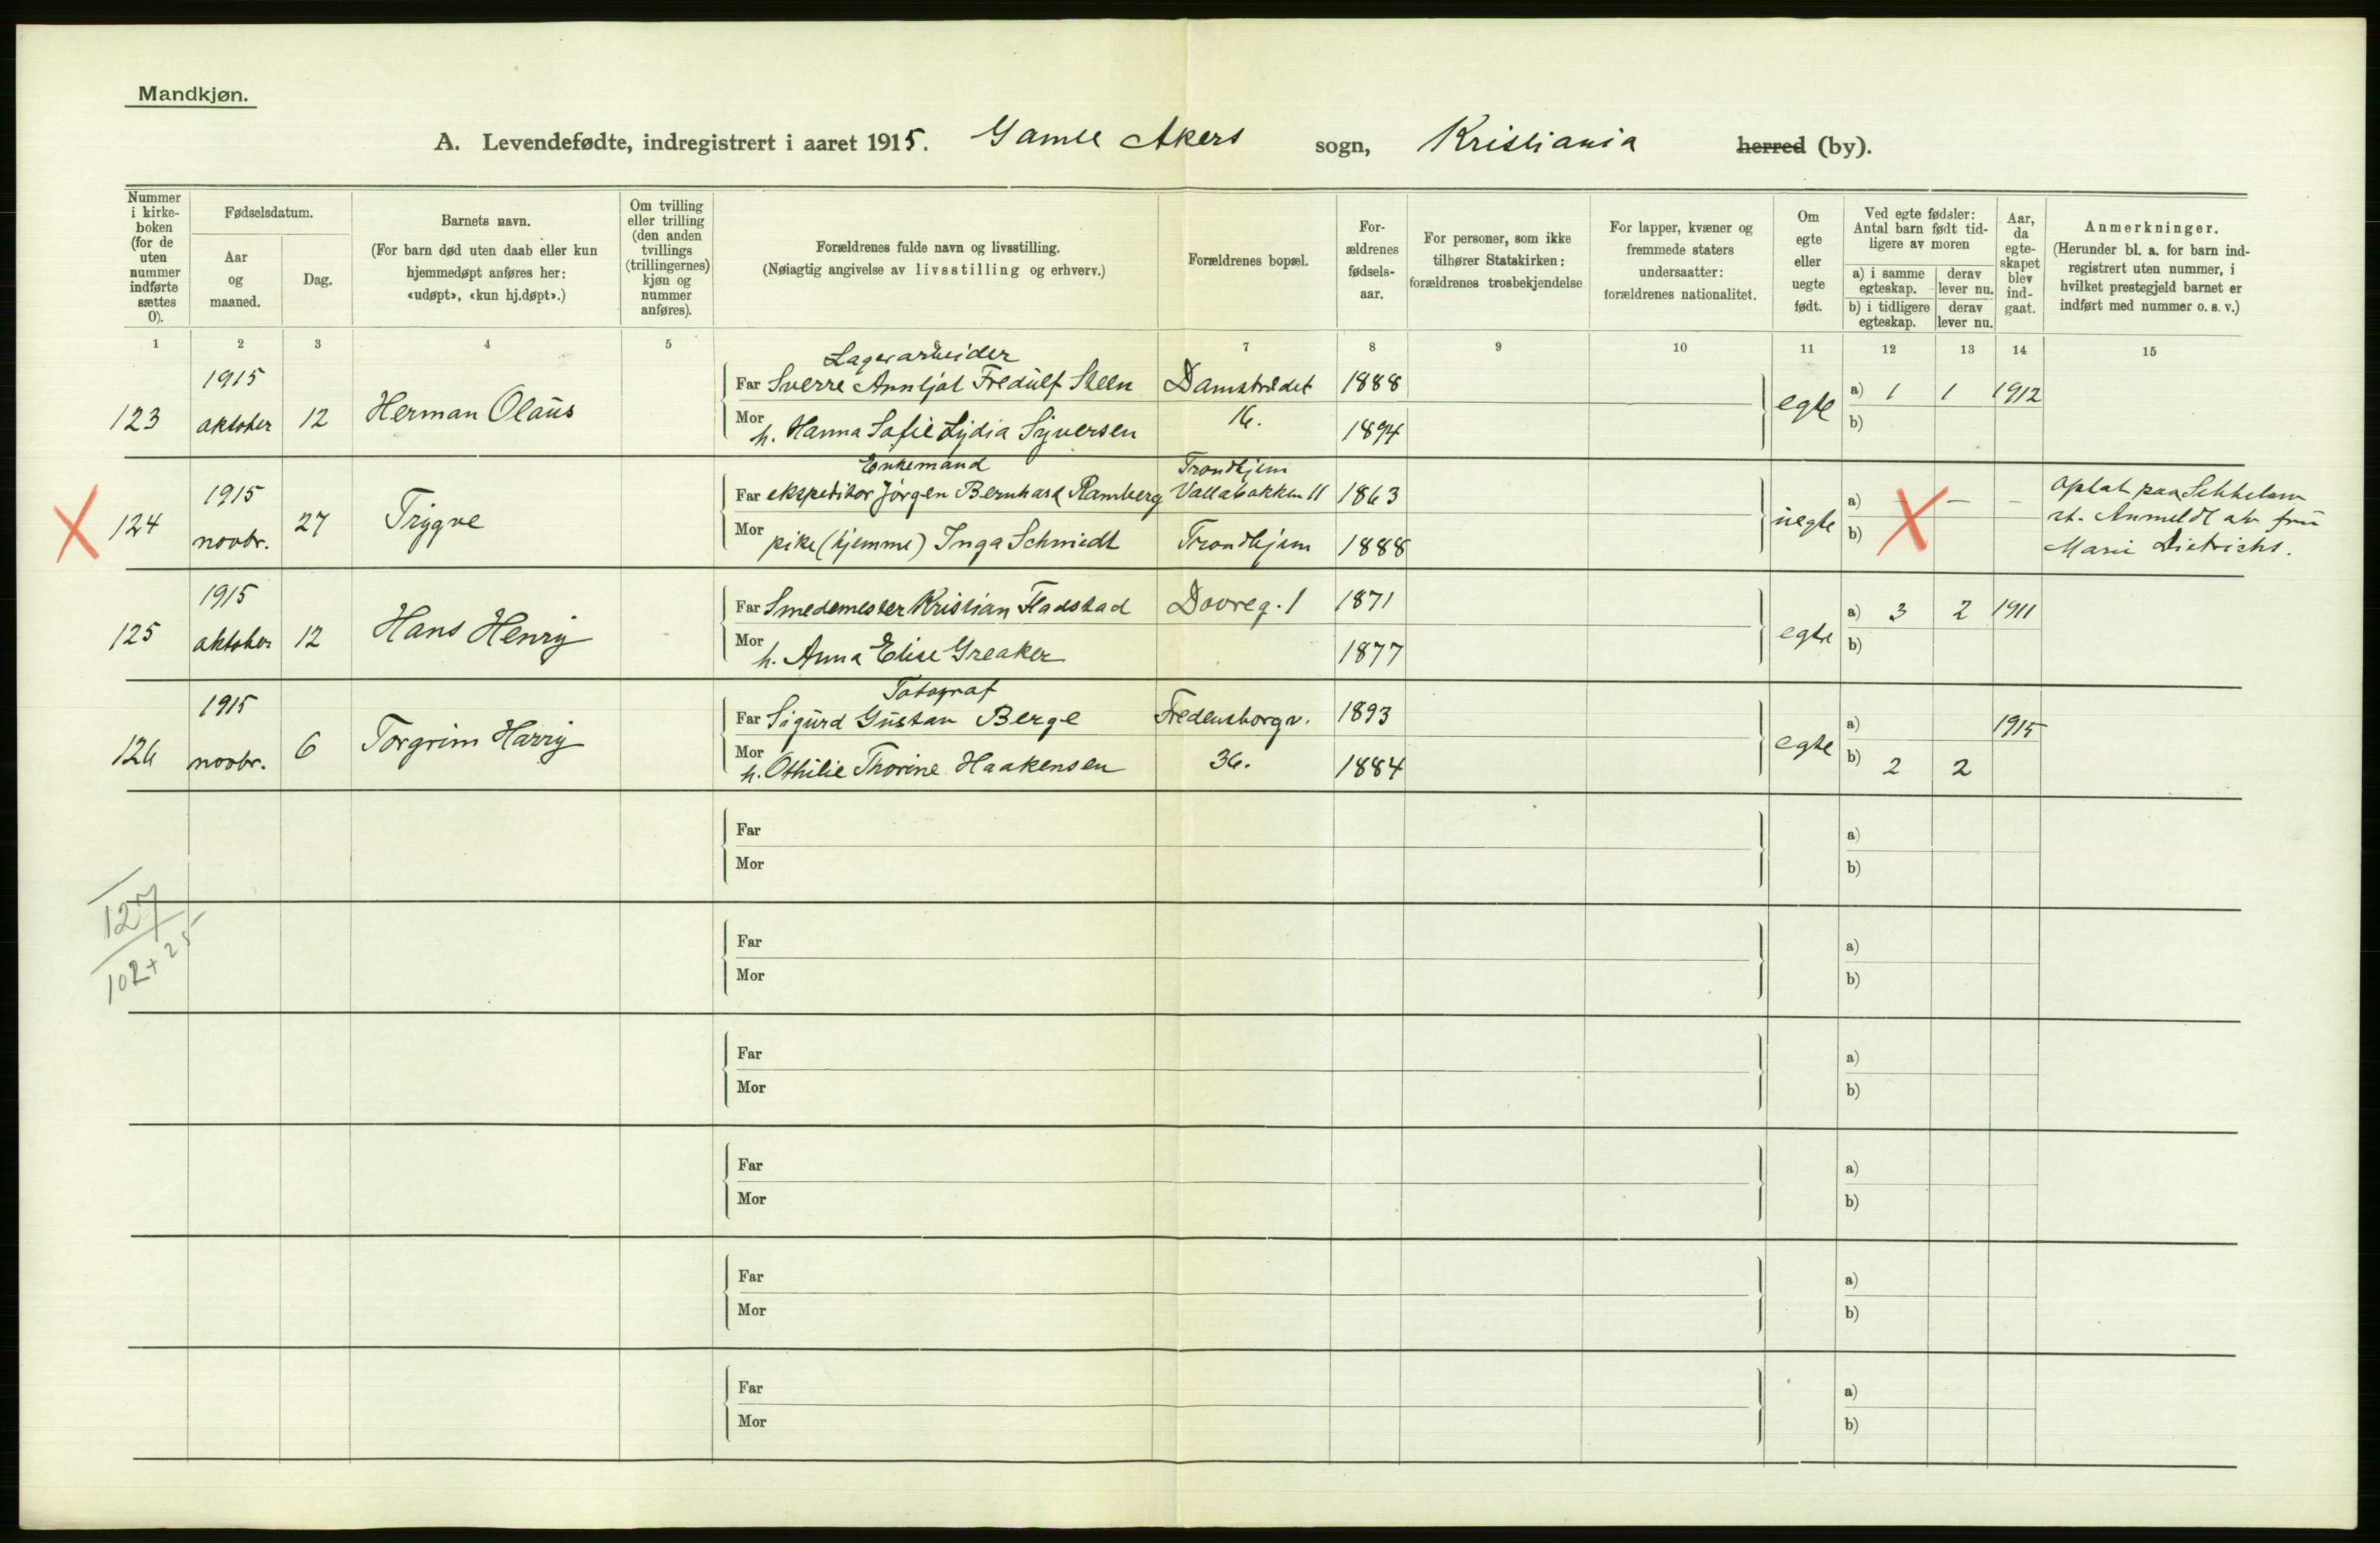 Mandkjøn.
A. Levendefødte, indregistrert i aaret 1915. Gamle Akers sogn, Kristiania herred (by).
Nummer i kirke-boken (for de uten nummer indførte sættes 0).
Fødselsdatum.
Aar og maaned.
Dag.
Barnets navn.
(For barn død uten daab eller kun hjemmedøpt anføres her: «udøpt», «kun hj.døpt».)
Om tvilling eller trilling (den anden tvillings (trillingernes) kjøn og nummer anføres).
Forældrenes fulde navn og livsstilling.
(Nøiagtig angivelse av livsstilling og erhverv.)
Forældrenes bopæl.
For-ældrenes fødsels-aar.
For personer, som ikke tilhører Statskirken: forældrenes trosbekjendelse
For lapper, kvæner og fremmede staters undersaatter: forældrenes nationalitet.
Om egte eller uegte født.
Ved egte fødsler: Antal barn født tid-ligere av moren
a) i samme egteskap.
derav lever nu.
b) i tidligere egteskap.
derav lever nu.
Aar, da egte-skapet blev ind-gaat.
Anmerkninger.
(Herunder bl. a. for barn ind-registrert uten nummer, i hvilket prestegjeld barnet er indført med nummer o. s. v.)
1 2 3 4 5 6 7 8 9 10 11 12 13 14 15
Lagerarbeider
1915 Far Sverre Annljot Fredulf Steen Damstrædet 1888 a) 1 1 1912
123 oktober 12 Herman Olaus egte
Mor h. Hanna Sofie Lydia Syversen 16. 1894 b)
Enkemand Trondhjem
1915 Far ekspeditor Jørgen Bernhard Ramberg Vallabakken 11 1863 a) — — — Optat paa
124 novbr. 27 Trygve uegte st. Anmeldt av fru
Mor pike (hjemme) Inga Schmidt Trondhjem 1888 b) Marie Dietrichs.
1915 Far Smedemester Kristian Fladstad Dovreg. 1 1871 a) 3 2 1911
125 oktober 12 Hans Henry egte
Mor h. Anna Elise Greaker 1877 b)
Fotograf
1915 Far Sigurd Gustav Berge Fredensborgv. 1893 a) 1915
126 novbr. 6 Torgrim Harry egte
Mor h. Othilie Thorine Haakensen 36. 1884 b) 2 2
Far a)
Mor b)
127
102+25
Far a)
Mor b)
Far a)
Mor b)
Far a)
Mor b)
Far a)
Mor b)
Far a)
Mor b)